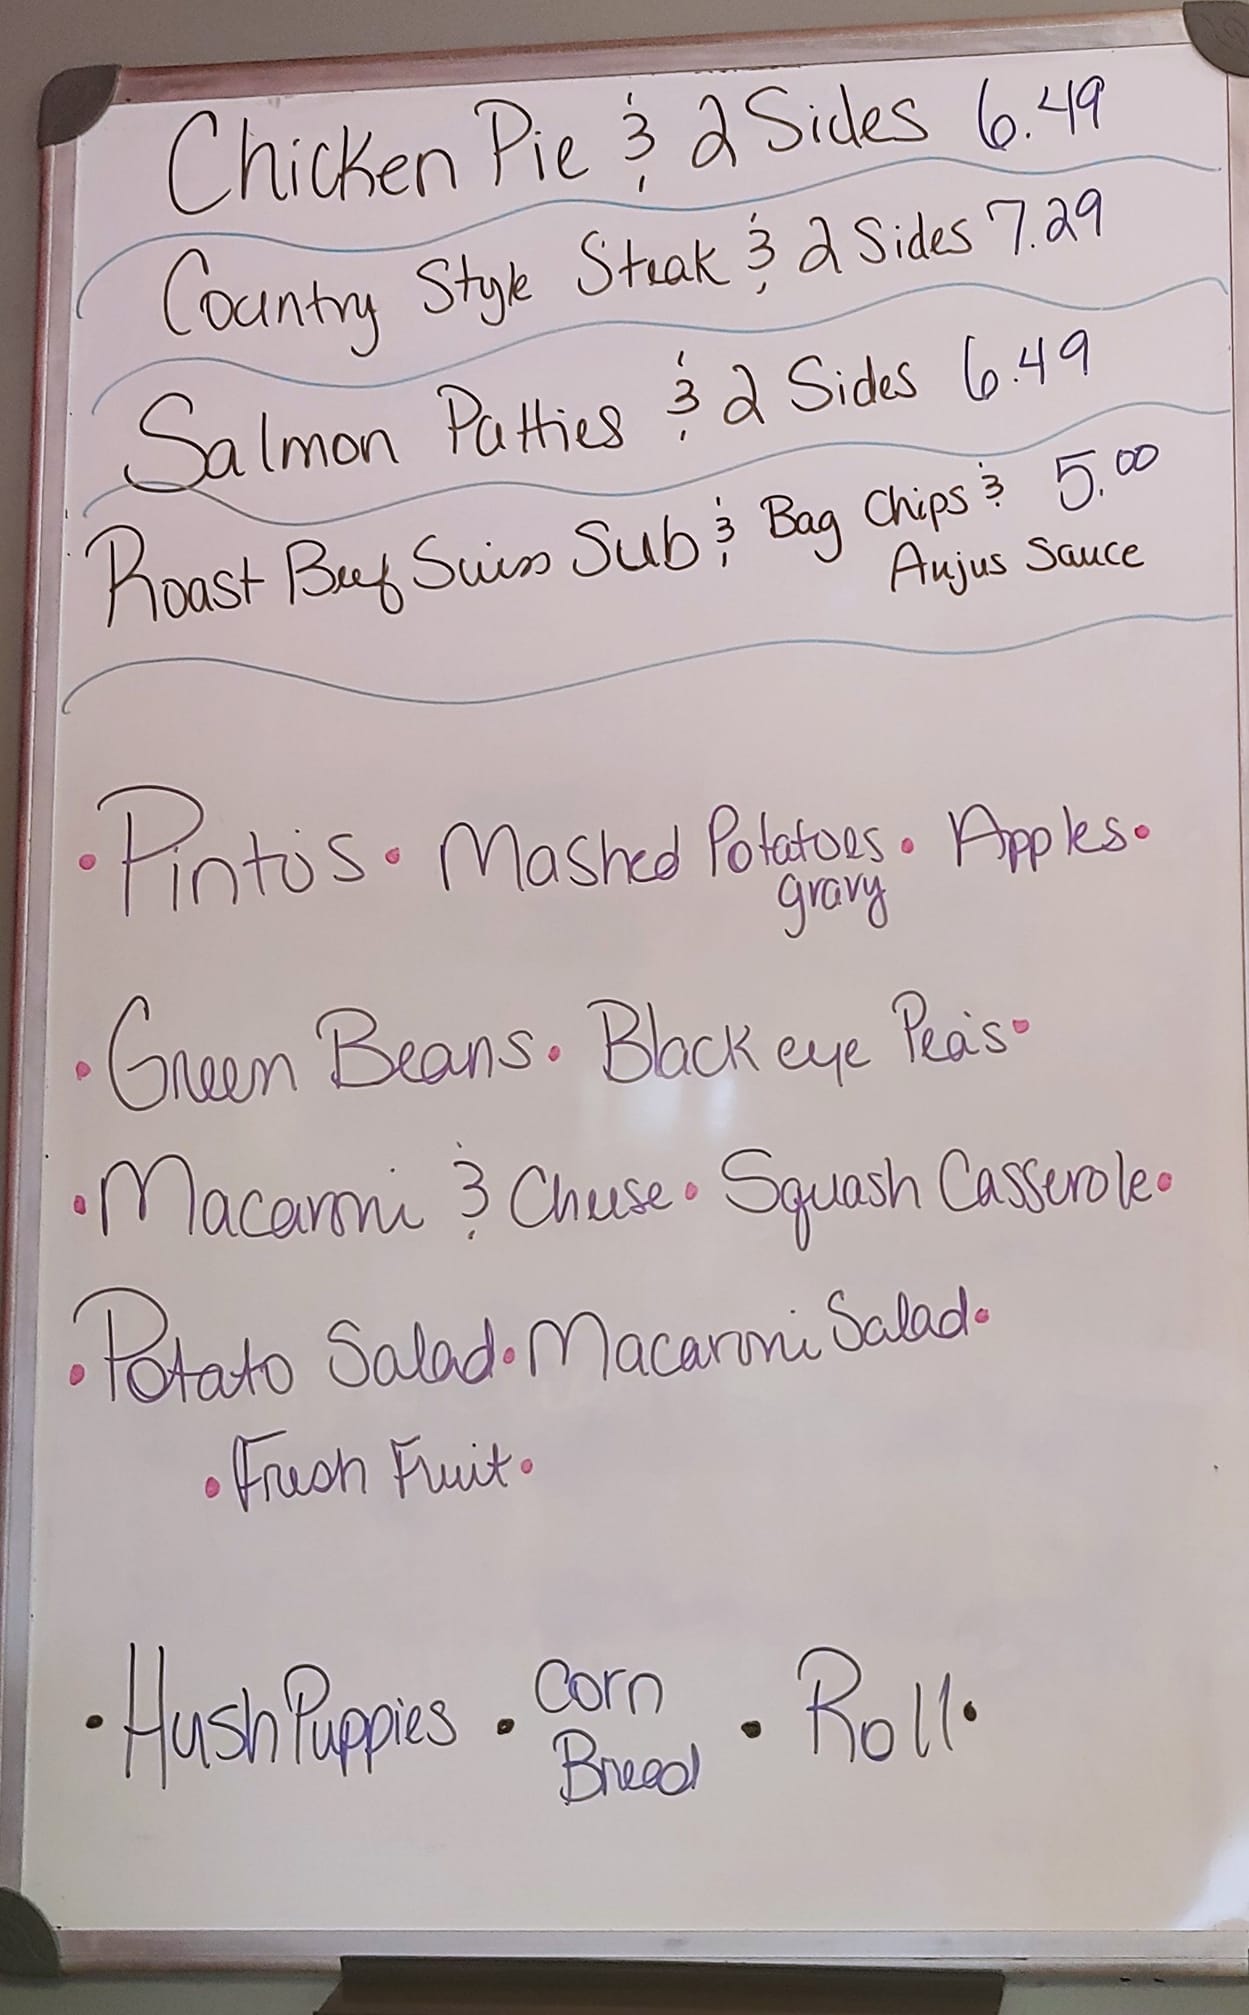 Chicken Pie & 2 Sides 6.49
Country Style Steak & 2 Sides 7.29
Salmon Patties & 2 Sides 6.49
Roast Beef Swiss Sub & Bag Chips & 5.00
Aujus Sauce
• Pintos • Mashed Potatoes • Apples •
gravy
• Green Beans • Black eye Pea's •
• Macaroni & Cheese • Squash Casserole •
• Potato Salad • Macaroni Salad •
• Fresh Fruit •
• Hush Puppies • Corn Bread • Roll •